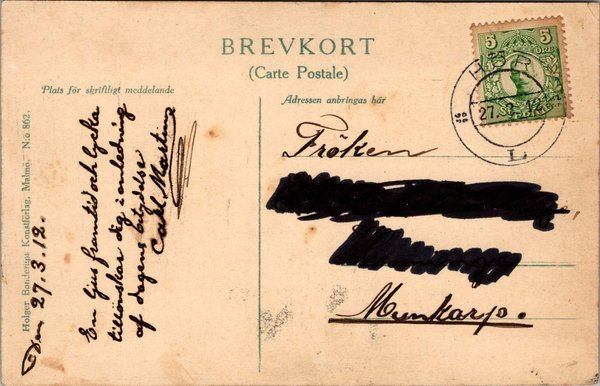 BREVKORT
(Carte Postale)
Plats för skriftligt meddelande
Adressen anbringas här
5 5
ÖRE
HÖR
27.3.12
L
Holger Bonderups Konstförlag, Malmö. N:o 862.
Den 27.3.12.
En ljus framtid och lycka
tillönskar dig i anledning
af dagens betydelse
Carl Martin
Fröken
Munkarp.